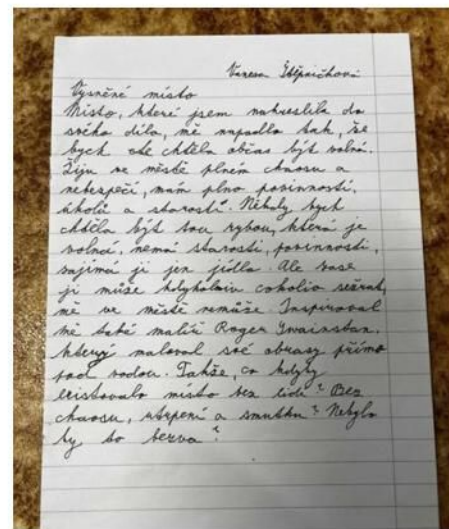 Vanesa Štěpničková
Vysněné místo
Místo, které jsem nakreslila do
svého díla, mě napadlo tak, že
bych chtěla občas být volná.
Žiju ve městě plném chaosu a
nebezpečí, mám plno povinností,
úkolů a starostí. Někdy bych
chtěla být tou rybou, která je
volná, nemá starosti, povinnosti,
zajímá ji jen jídlo. Ale zase
ji může kdykoliv cokoliv sežrat,
mě ve městě nemůže. Inspiroval
mě také malíř Roger
který maloval své obrazy přímo
pod vodou. Takže, co kdyby
existovalo místo bez lidí? Bez
chaosu, utrpení a smutku? Nebylo
by to